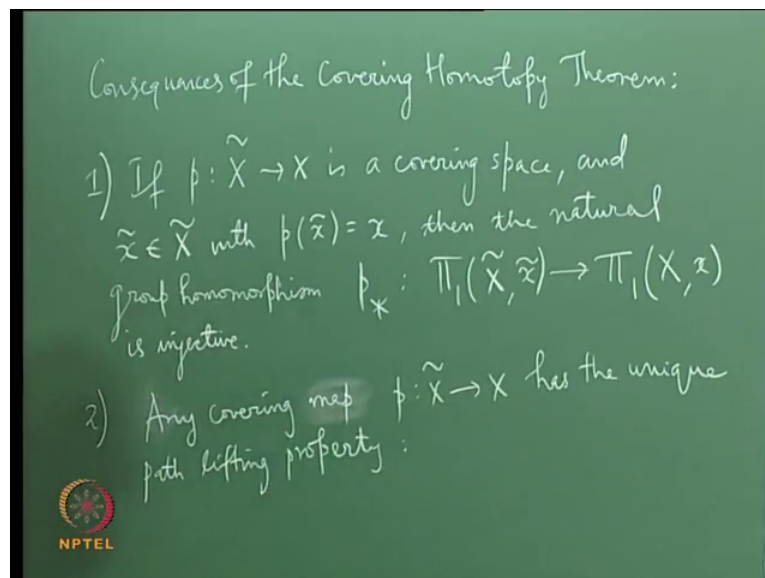 Consequences of the Covering Homotopy Theorem:
1) If p : X̃ → X is a covering space, and
x̃ ∈ X̃ with p(x̃) = x, then the natural
group homomorphism p_* : Π₁(X̃, x̃) → Π₁(X, x)
is injective.
2) Any covering map p : X̃ → X has the unique
path lifting property :
NPTEL